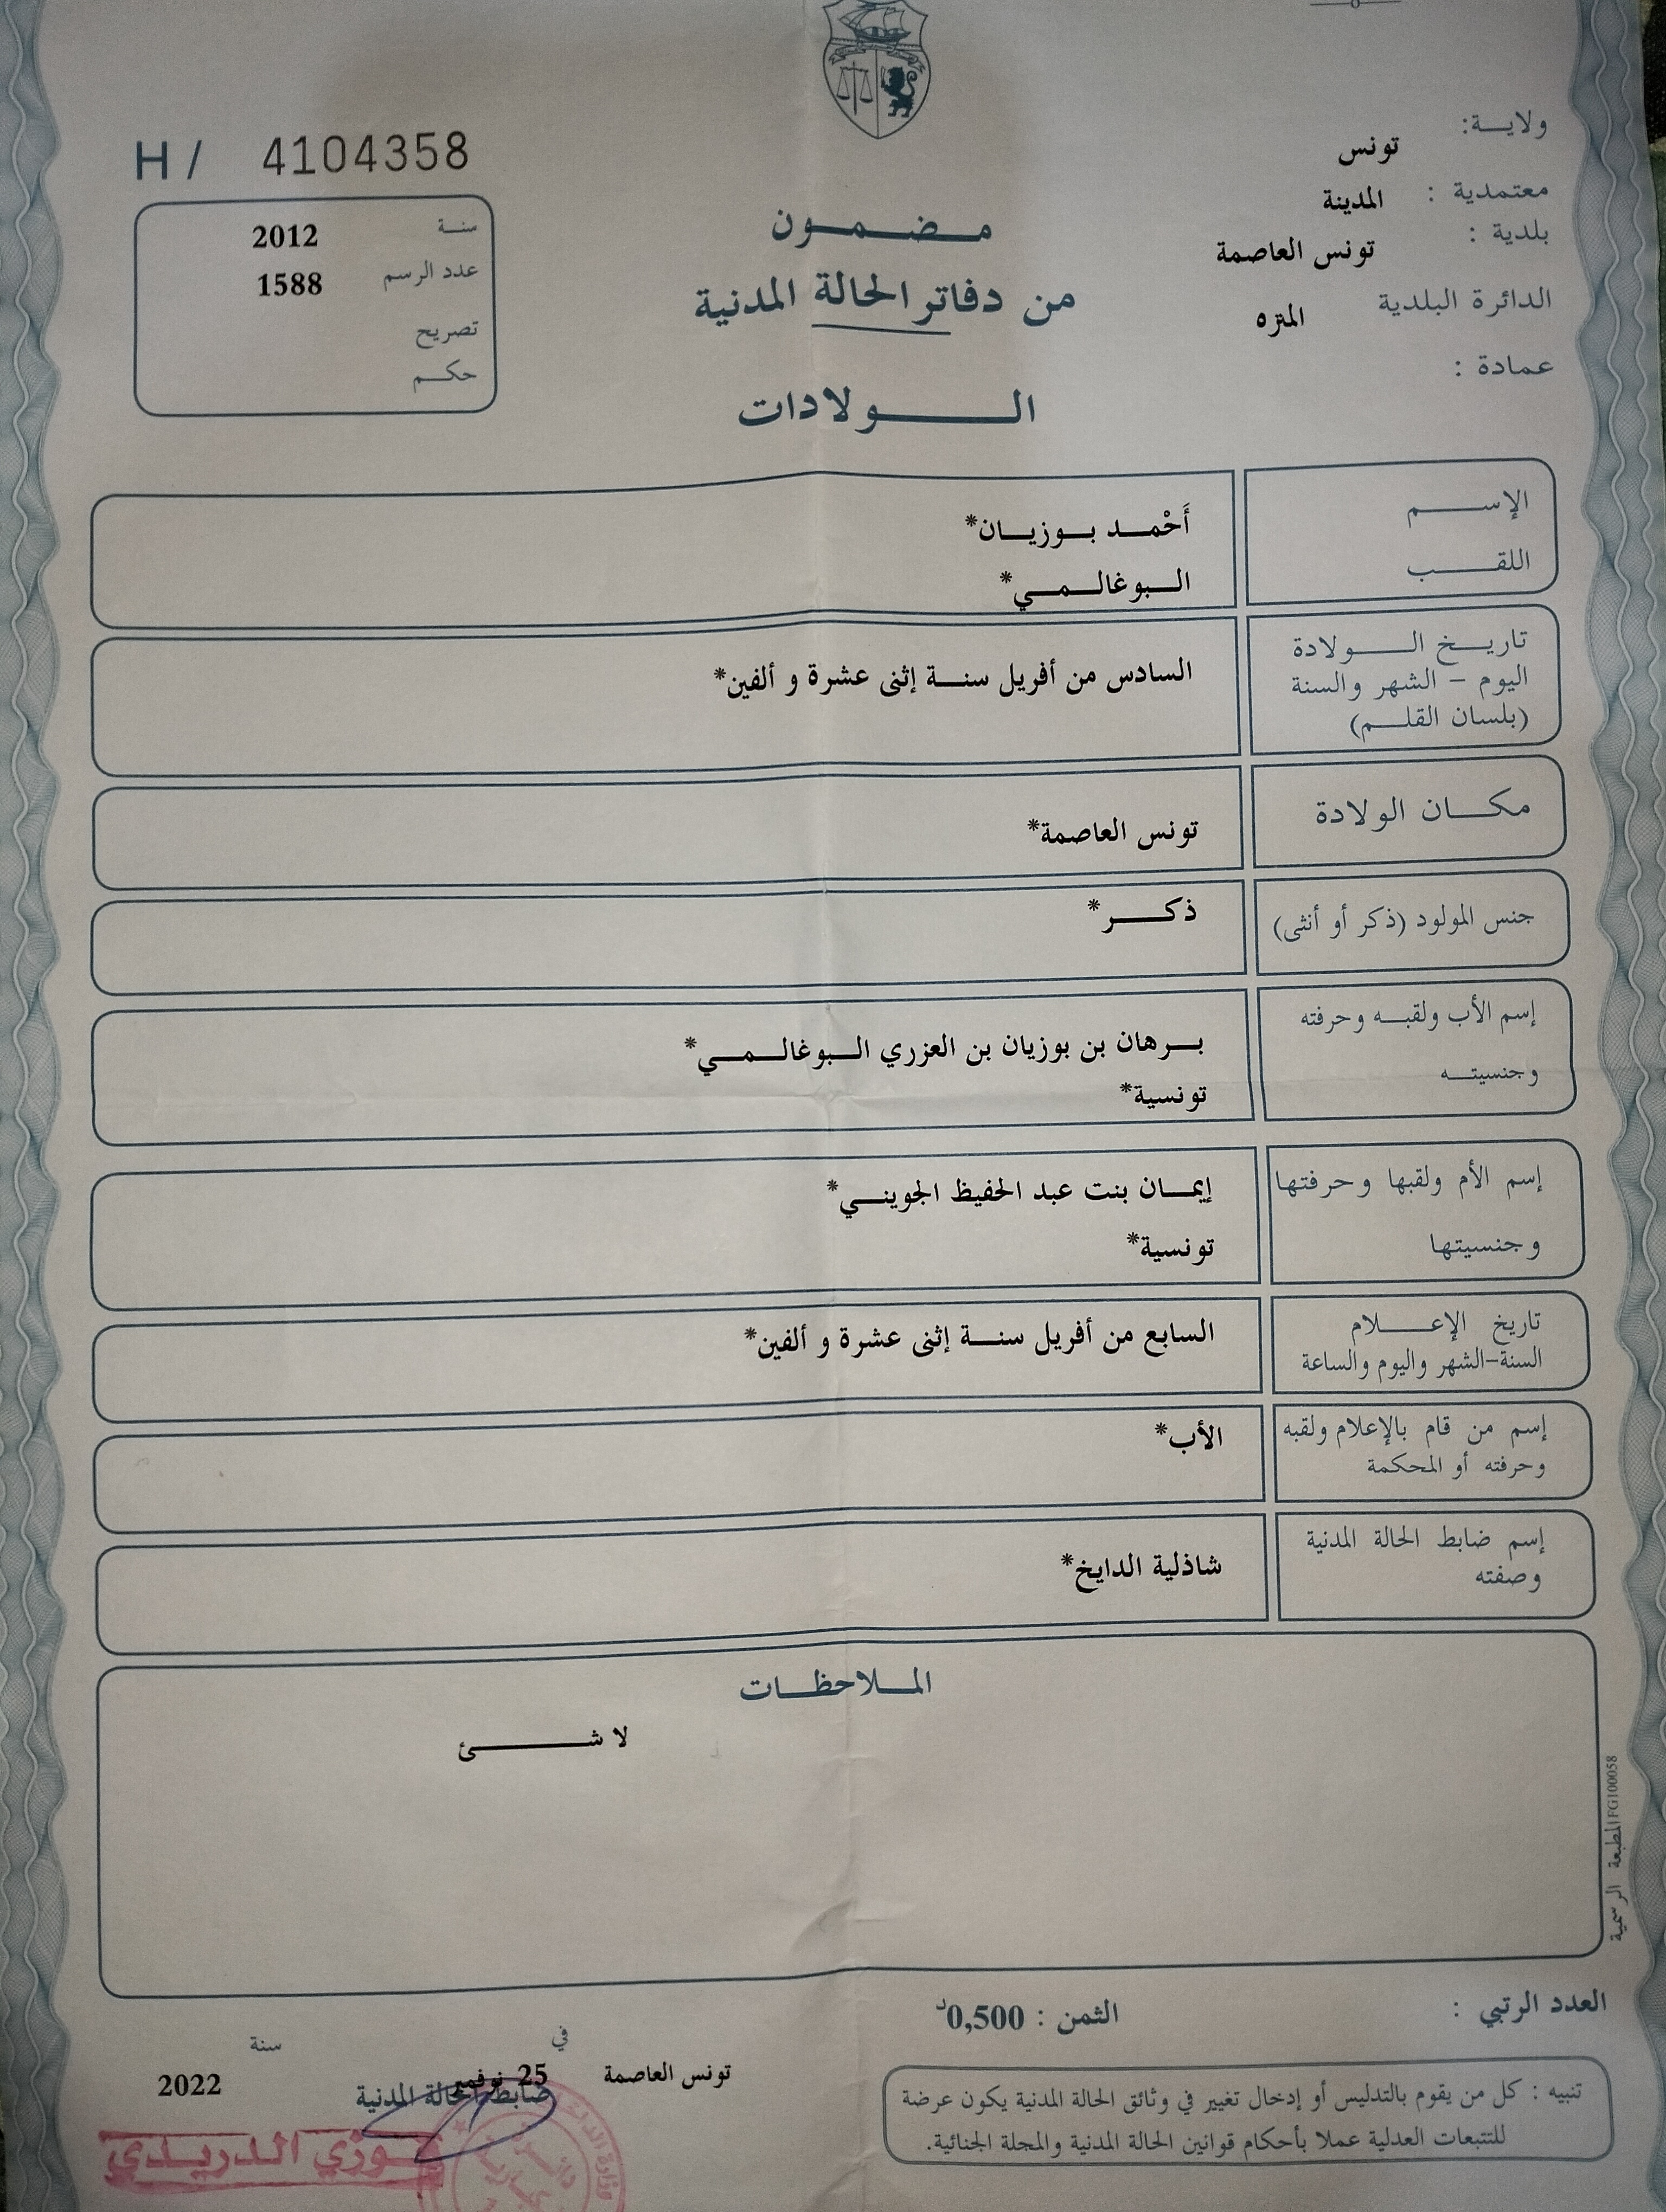 H / 4104358
سنة 2012
عدد الرسم 1588
تصريح
حكم
ولاية: تونس
معتمدية : المدينة
بلدية : تونس العاصمة
الدائرة البلدية المنزه
عمادة :
مضمون
من دفاتر الحالة المدنية
الولادات
الإسم أَحْمد بوزيان*
اللقب البوغالمي*
تاريخ الولادة
اليوم - الشهر والسنة
(بلسان القلم)
السادس من أفريل سنة إثنى عشرة و ألفين*
مكان الولادة تونس العاصمة*
جنس المولود (ذكر أو أنثى) ذكر*
إسم الأب ولقبه وحرفته
وجنسيته
برهان بن بوزيان بن العزري البوغالمي*
تونسية*
إسم الأم ولقبها وحرفتها
وجنسيتها
إيمان بنت عبد الحفيظ الجويني*
تونسية*
تاريخ الإعلام
السنة-الشهر واليوم والساعة
السابع من أفريل سنة إثنى عشرة و ألفين*
إسم من قام بالإعلام ولقبه
وحرفته أو المحكمة
الأب*
إسم ضابط الحالة المدنية
وصفته
شاذلية الدايخ*
الملاحظات
لا شئ
المطبعة الرسمية FG100058
العدد الرتبي :
الثمن : 0,500د
تنبيه : كل من يقوم بالتدليس أو إدخال تغيير في وثائق الحالة المدنية يكون عرضة
للتتبعات العدلية عملا بأحكام قوانين الحالة المدنية والمجلة الجنائية.
تونس العاصمة في 25 نوفمبر سنة 2022
ضابط الحالة المدنية
فوزي الدريدي